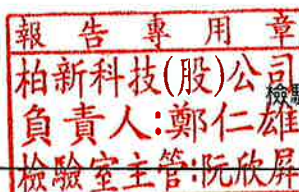 報告專用章
柏新科技(股)公司
負責人:鄭仁雄
檢驗室主管:阮欣屏
檢